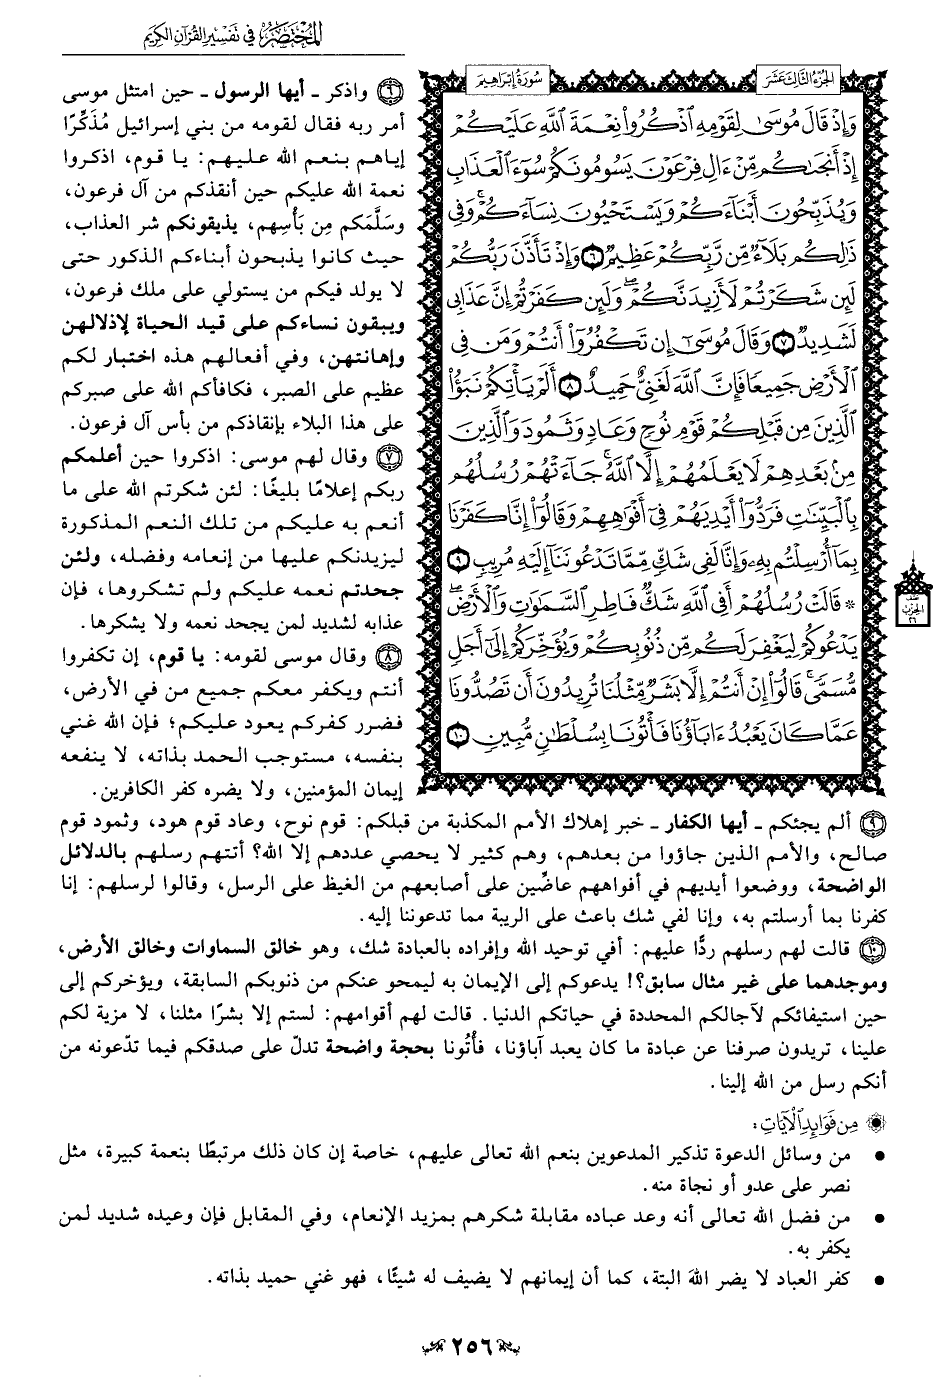 المُخْتَصَرُ فِي تَفْسِيرِ القُرْآنِ الكَرِيمِ
الجُزْءُ الثَّالِثَ عَشَرَ
سُورَةُ إِبْرَاهِيمَ
وَإِذْ قَالَ مُوسَىٰ لِقَوْمِهِ ٱذْكُرُواْ نِعْمَةَ ٱللَّهِ عَلَيْكُمْ
إِذْ أَنجَىٰكُم مِّنْ ءَالِ فِرْعَوْنَ يَسُومُونَكُمْ سُوٓءَ ٱلْعَذَابِ
وَيُذَبِّحُونَ أَبْنَآءَكُمْ وَيَسْتَحْيُونَ نِسَآءَكُمْۚ وَفِى
ذَٰلِكُم بَلَآءٌ مِّن رَّبِّكُمْ عَظِيمٌ ٦ وَإِذْ تَأَذَّنَ رَبُّكُمْ
لَئِن شَكَرْتُمْ لَأَزِيدَنَّكُمْۖ وَلَئِن كَفَرْتُمْ إِنَّ عَذَابِى
لَشَدِيدٌ ٧ وَقَالَ مُوسَىٰٓ إِن تَكْفُرُوٓاْ أَنتُمْ وَمَن فِى
ٱلْأَرْضِ جَمِيعًا فَإِنَّ ٱللَّهَ لَغَنِىٌّ حَمِيدٌ ٨ أَلَمْ يَأْتِكُمْ نَبَؤُاْ
ٱلَّذِينَ مِن قَبْلِكُمْ قَوْمِ نُوحٍ وَعَادٍ وَثَمُودَ وَٱلَّذِينَ
مِنۢ بَعْدِهِمْ لَا يَعْلَمُهُمْ إِلَّا ٱللَّهُۚ جَآءَتْهُمْ رُسُلُهُم
بِٱلْبَيِّنَٰتِ فَرَدُّوٓاْ أَيْدِيَهُمْ فِىٓ أَفْوَٰهِهِمْ وَقَالُوٓاْ إِنَّا كَفَرْنَا
بِمَآ أُرْسِلْتُم بِهِۦ وَإِنَّا لَفِى شَكٍّ مِّمَّا تَدْعُونَنَآ إِلَيْهِ مُرِيبٍ ٩
* قَالَتْ رُسُلُهُمْ أَفِى ٱللَّهِ شَكٌّ فَاطِرِ ٱلسَّمَٰوَٰتِ وَٱلْأَرْضِۖ
يَدْعُوكُمْ لِيَغْفِرَ لَكُم مِّن ذُنُوبِكُمْ وَيُؤَخِّرَكُمْ إِلَىٰٓ أَجَلٍ
مُّسَمًّىۚ قَالُوٓاْ إِنْ أَنتُمْ إِلَّا بَشَرٌ مِّثْلُنَا تُرِيدُونَ أَن تَصُدُّونَا
عَمَّا كَانَ يَعْبُدُ ءَابَآؤُنَا فَأْتُونَا بِسُلْطَٰنٍ مُّبِينٍ ١٠
٦ واذكر ـ أيها الرسول ـ حين امتثل موسى
أمر ربه فقال لقومه من بني إسرائيل مُذَكِّرًا
إياهم بنعم الله عليهم: يا قوم، اذكروا
نعمة الله عليكم حين أنقذكم من آل فرعون،
وسَلَّمَكم مِن بَأسِهم، يذيقونكم شر العذاب،
حيث كانوا يذبحون أبناءكم الذكور حتى
لا يولد فيكم من يستولي على ملك فرعون،
ويبقون نساءكم على قيد الحياة لإذلالهن
وإهانتهن، وفي أفعالهم هذه اختبار لكم
عظيم على الصبر، فكافأكم الله على صبركم
على هذا البلاء بإنقاذكم من بأس آل فرعون.
٧ وقال لهم موسى: اذكروا حين أعلمكم
ربكم إعلامًا بليغًا: لئن شكرتم الله على ما
أنعم به عليكم من تلك النعم المذكورة
ليزيدنكم عليها من إنعامه وفضله، ولئن
جحدتم نعمه عليكم ولم تشكروها، فإن
عذابه لشديد لمن يجحد نعمه ولا يشكرها.
٨ وقال موسى لقومه: يا قوم، إن تكفروا
أنتم ويكفر معكم جميع من في الأرض،
فضرر كفركم يعود عليكم؛ فإن الله غني
بنفسه، مستوجب الحمد بذاته، لا ينفعه
إيمان المؤمنين، ولا يضره كفر الكافرين.
٩ ألم يجئكم ـ أيها الكفار ـ خبر إهلاك الأمم المكذبة من قبلكم: قوم نوح، وعاد قوم هود، وثمود قوم
صالح، والأمم الذين جاؤوا من بعدهم، وهم كثير لا يحصي عددهم إلا الله؟ أتتهم رسلهم بالدلائل
الواضحة، ووضعوا أيديهم في أفواههم عاضِّين على أصابعهم من الغيظ على الرسل، وقالوا لرسلهم: إنا
كفرنا بما أرسلتم به، وإنا لفي شك باعث على الريبة مما تدعوننا إليه.
١٠ قالت لهم رسلهم ردًّا عليهم: أفي توحيد الله وإفراده بالعبادة شك، وهو خالق السماوات وخالق الأرض،
وموجدهما على غير مثال سابق؟! يدعوكم إلى الإيمان به ليمحو عنكم من ذنوبكم السابقة، ويؤخركم إلى
حين استيفائكم لآجالكم المحددة في حياتكم الدنيا. قالت لهم أقوامهم: لستم إلا بشرًا مثلنا، لا مزية لكم
علينا، تريدون صرفنا عن عبادة ما كان يعبد آباؤنا، فأْتُونا بحجة واضحة تدلّ على صدقكم فيما تدّعونه من
أنكم رسل من الله إلينا.
مِن فَوَائِدِ الآيَاتِ:
• من وسائل الدعوة تذكير المدعوين بنعم الله تعالى عليهم، خاصة إن كان ذلك مرتبطًا بنعمة كبيرة، مثل
نصر على عدو أو نجاة منه.
• من فضل الله تعالى أنه وعد عباده مقابلة شكرهم بمزيد الإنعام، وفي المقابل فإن وعيده شديد لمن
يكفر به.
• كفر العباد لا يضر اللهَ البتة، كما أن إيمانهم لا يضيف له شيئًا، فهو غني حميد بذاته.
٢٥٦